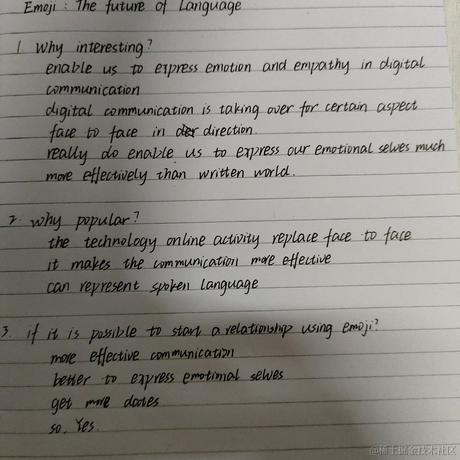 Emoji: The future of Language
1 Why interesting?
enable us to express emotion and empathy in digital
communication
digital communication is taking over for certain aspect
face to face in direction.
really do enable us to express our emotional selves much
more effectively than written world.
2. Why popular?
the technology online activity replace face to face
it makes the communication more effective
can represent spoken language
3. if it is possible to start a relationship using emoji?
more effective communication
better to express emotional selves
get more dates
so, Yes.
@稀土掘金技术社区